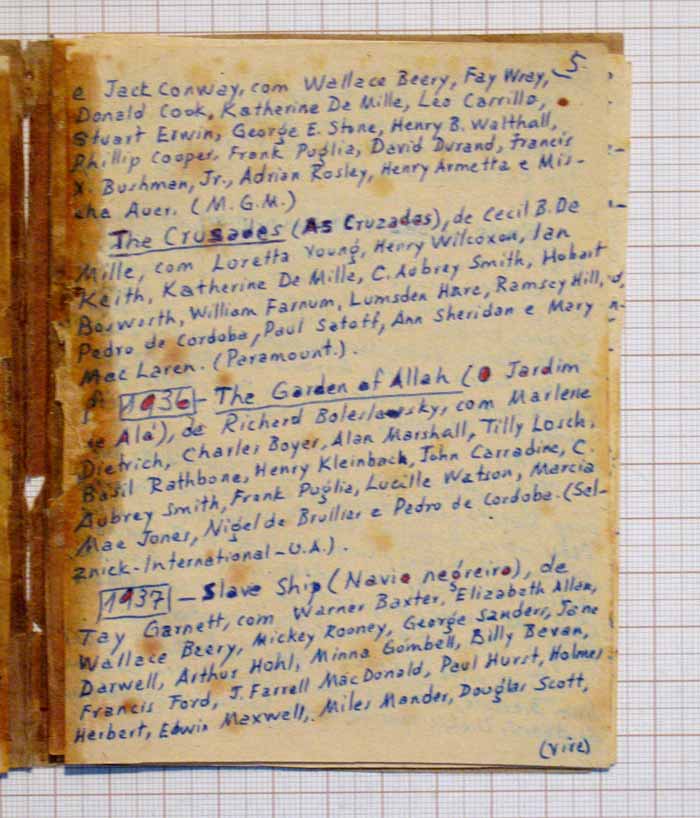 5
e Jack Conway, com Wallace Beery, Fay Wray,
Donald Cook, Katherine De Mille, Leo Carrillo,
Stuart Erwin, George E. Stone, Henry B. Walthall,
Phillip Cooper, Frank Puglia, David Durand, Francis
X. Bushman, Jr., Adrian Rosley, Henry Armetta e Mis-
cha Auer. (M.G.M.)
The Crusades (As Cruzadas), de Cecil B. De
Mille, com Loretta Young, Henry Wilcoxon, Ian
Keith, Katherine De Mille, C. Aubrey Smith, Hobart
Bosworth, William Farnum, Lumsden Hare, Ramsey Hill,
Pedro de Cordoba, Paul Satoff, Ann Sheridan e Mary
Mac Laren. (Paramount.).
1936 - The Garden of Allah (O Jardim
de Alá), de Richard Boleslawsky, com Marlene
Dietrich, Charles Boyer, Alan Marshall, Tilly Losch,
Basil Rathbone, Henry Kleinback, John Carradine, C.
Aubrey Smith, Frank Puglia, Lucille Watson, Marcia
Mae Jones, Nigel de Brullier e Pedro de Cordoba. (Sel-
znick-International-U.A.).
1937 - Slave Ship (Navio negreiro), de
Tay Garnett, com Warner Baxter, Elizabeth Allan,
Wallace Beery, Mickey Rooney, George Sanders, Jane
Darwell, Arthur Hohl, Minna Gombell, Billy Bevan,
Francis Ford, J. Farrell MacDonald, Paul Hurst, Holmes
Herbert, Edwin Maxwell, Miles Mander, Douglas Scott,
(vire)